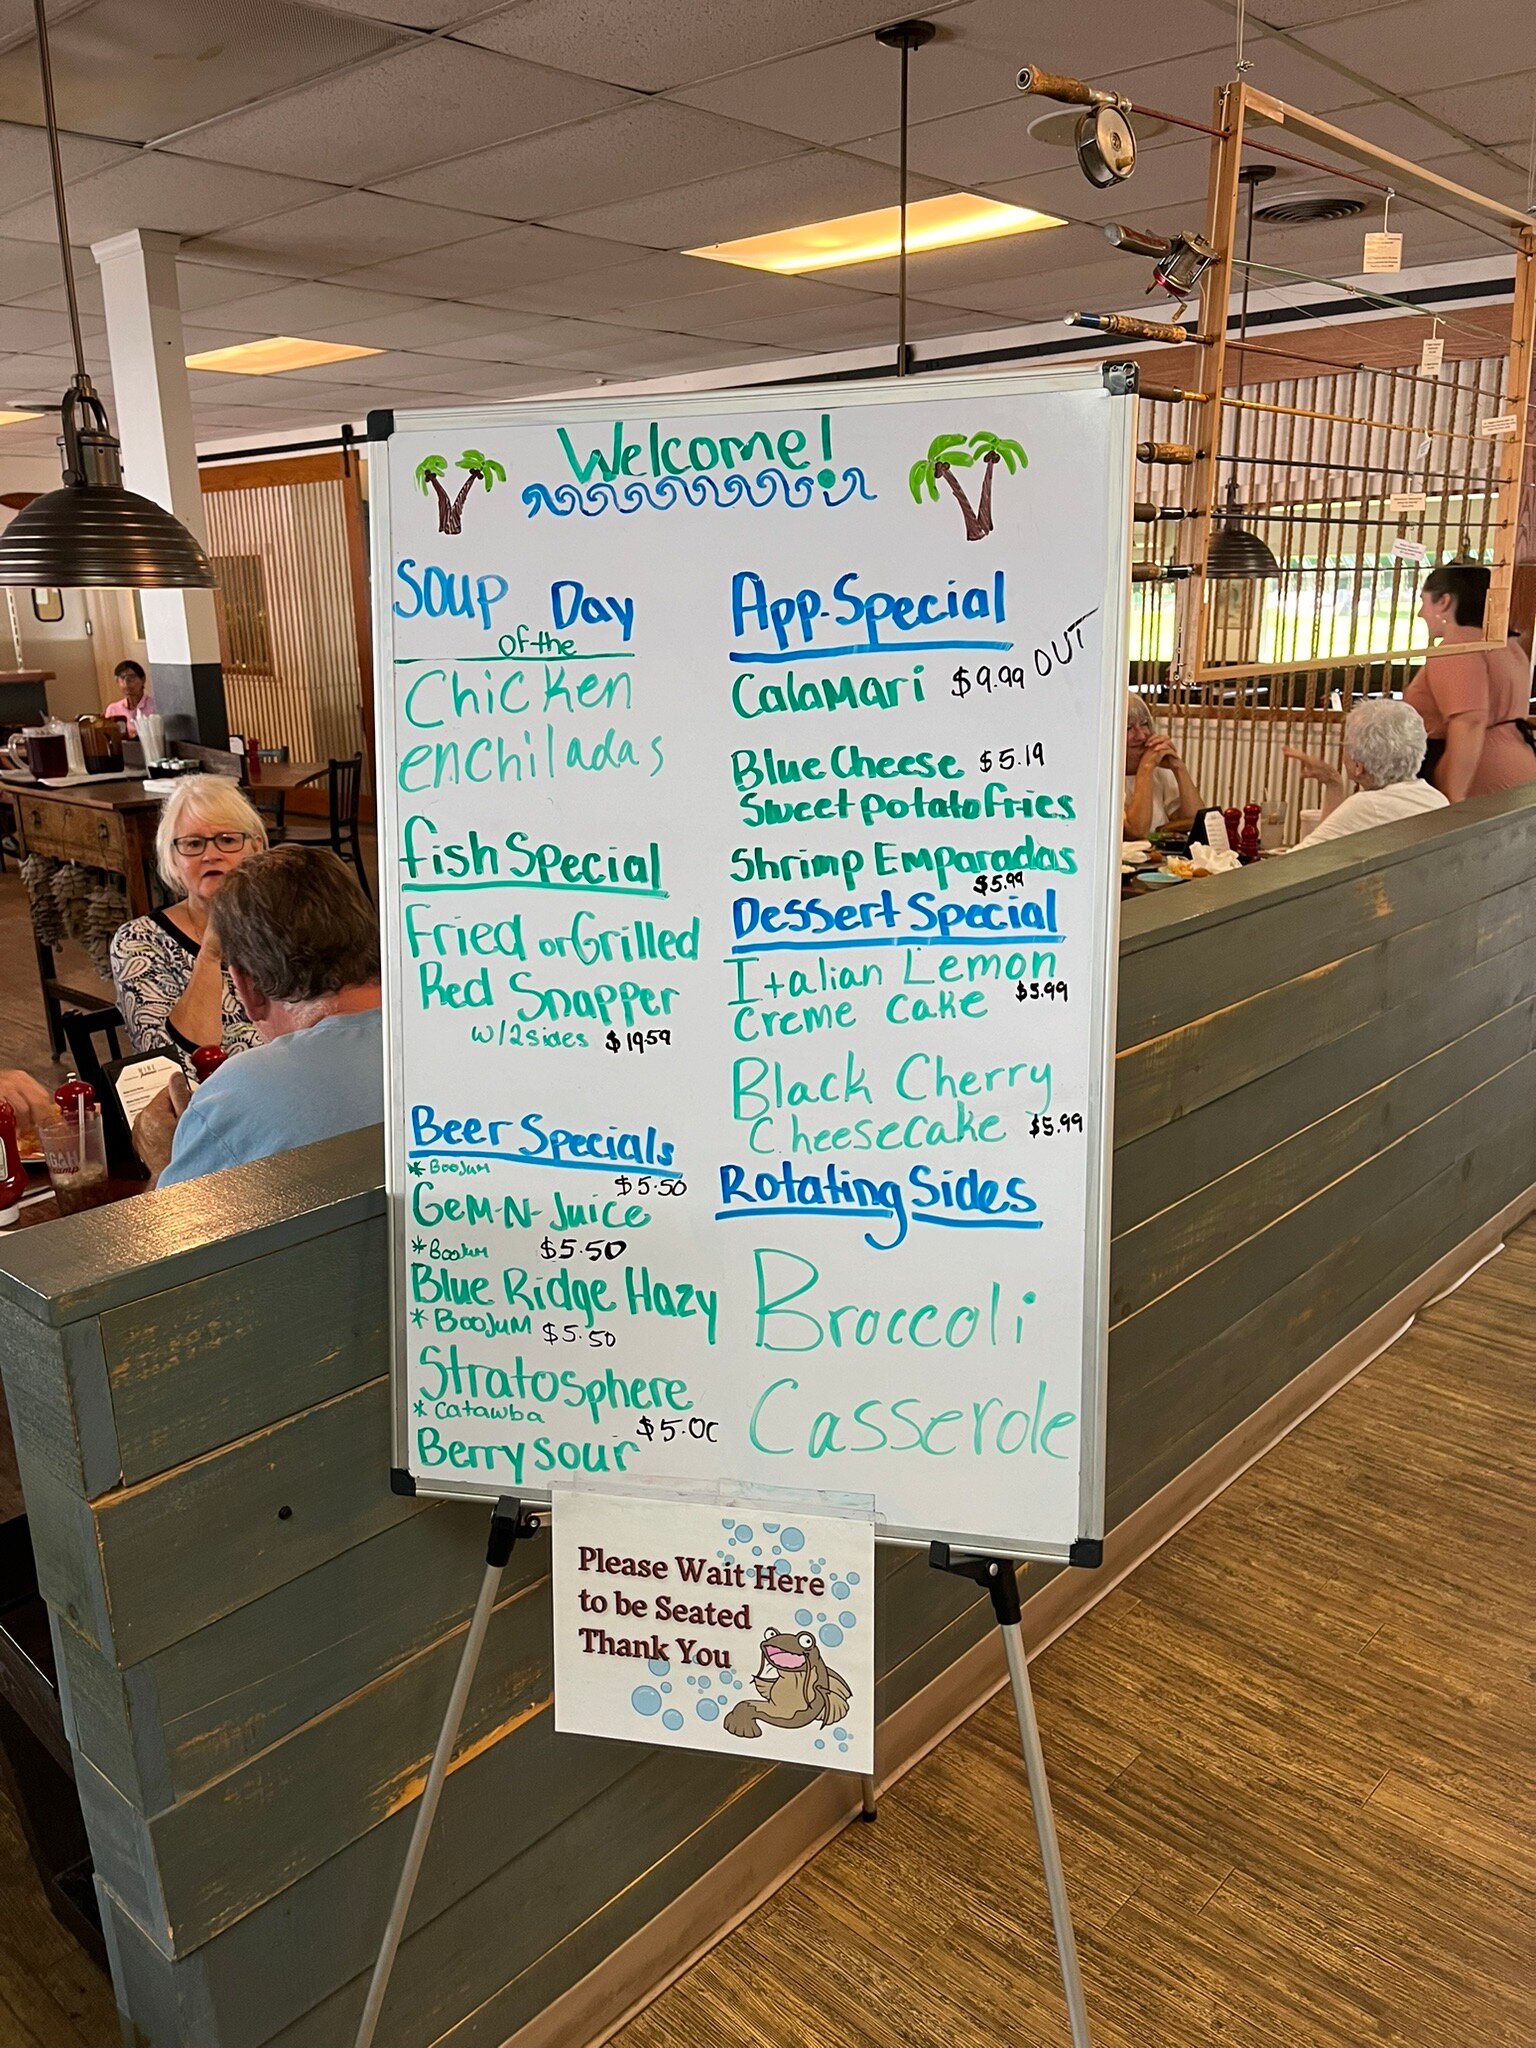 Welcome!
Soup of the Day
Chicken
enchiladas
fish Special
Fried or Grilled
Red Snapper
w/2sides $19.59
Beer Specials
*BooJum $5.50
Gem-N-Juice
*BooJum $5.50
Blue Ridge Hazy
*BooJum $5.50
Stratosphere
*Catawba $5.00
Berry sour
App-Special
Calamari $9.99 OUT
Blue Cheese $5.19
Sweet potato fries
Shrimp Emparadas
$5.99
Dessert Special
Italian Lemon
Creme Cake $5.99
Black Cherry
Cheesecake $5.99
Rotating Sides
Broccoli
Casserole
Please Wait Here
to be Seated
Thank You
WINE